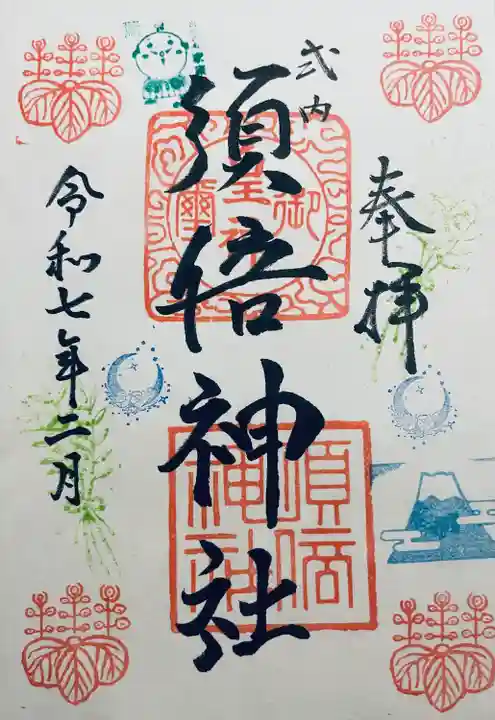 奉拝
式内
須倍神社
令和七年二月
須倍
神社